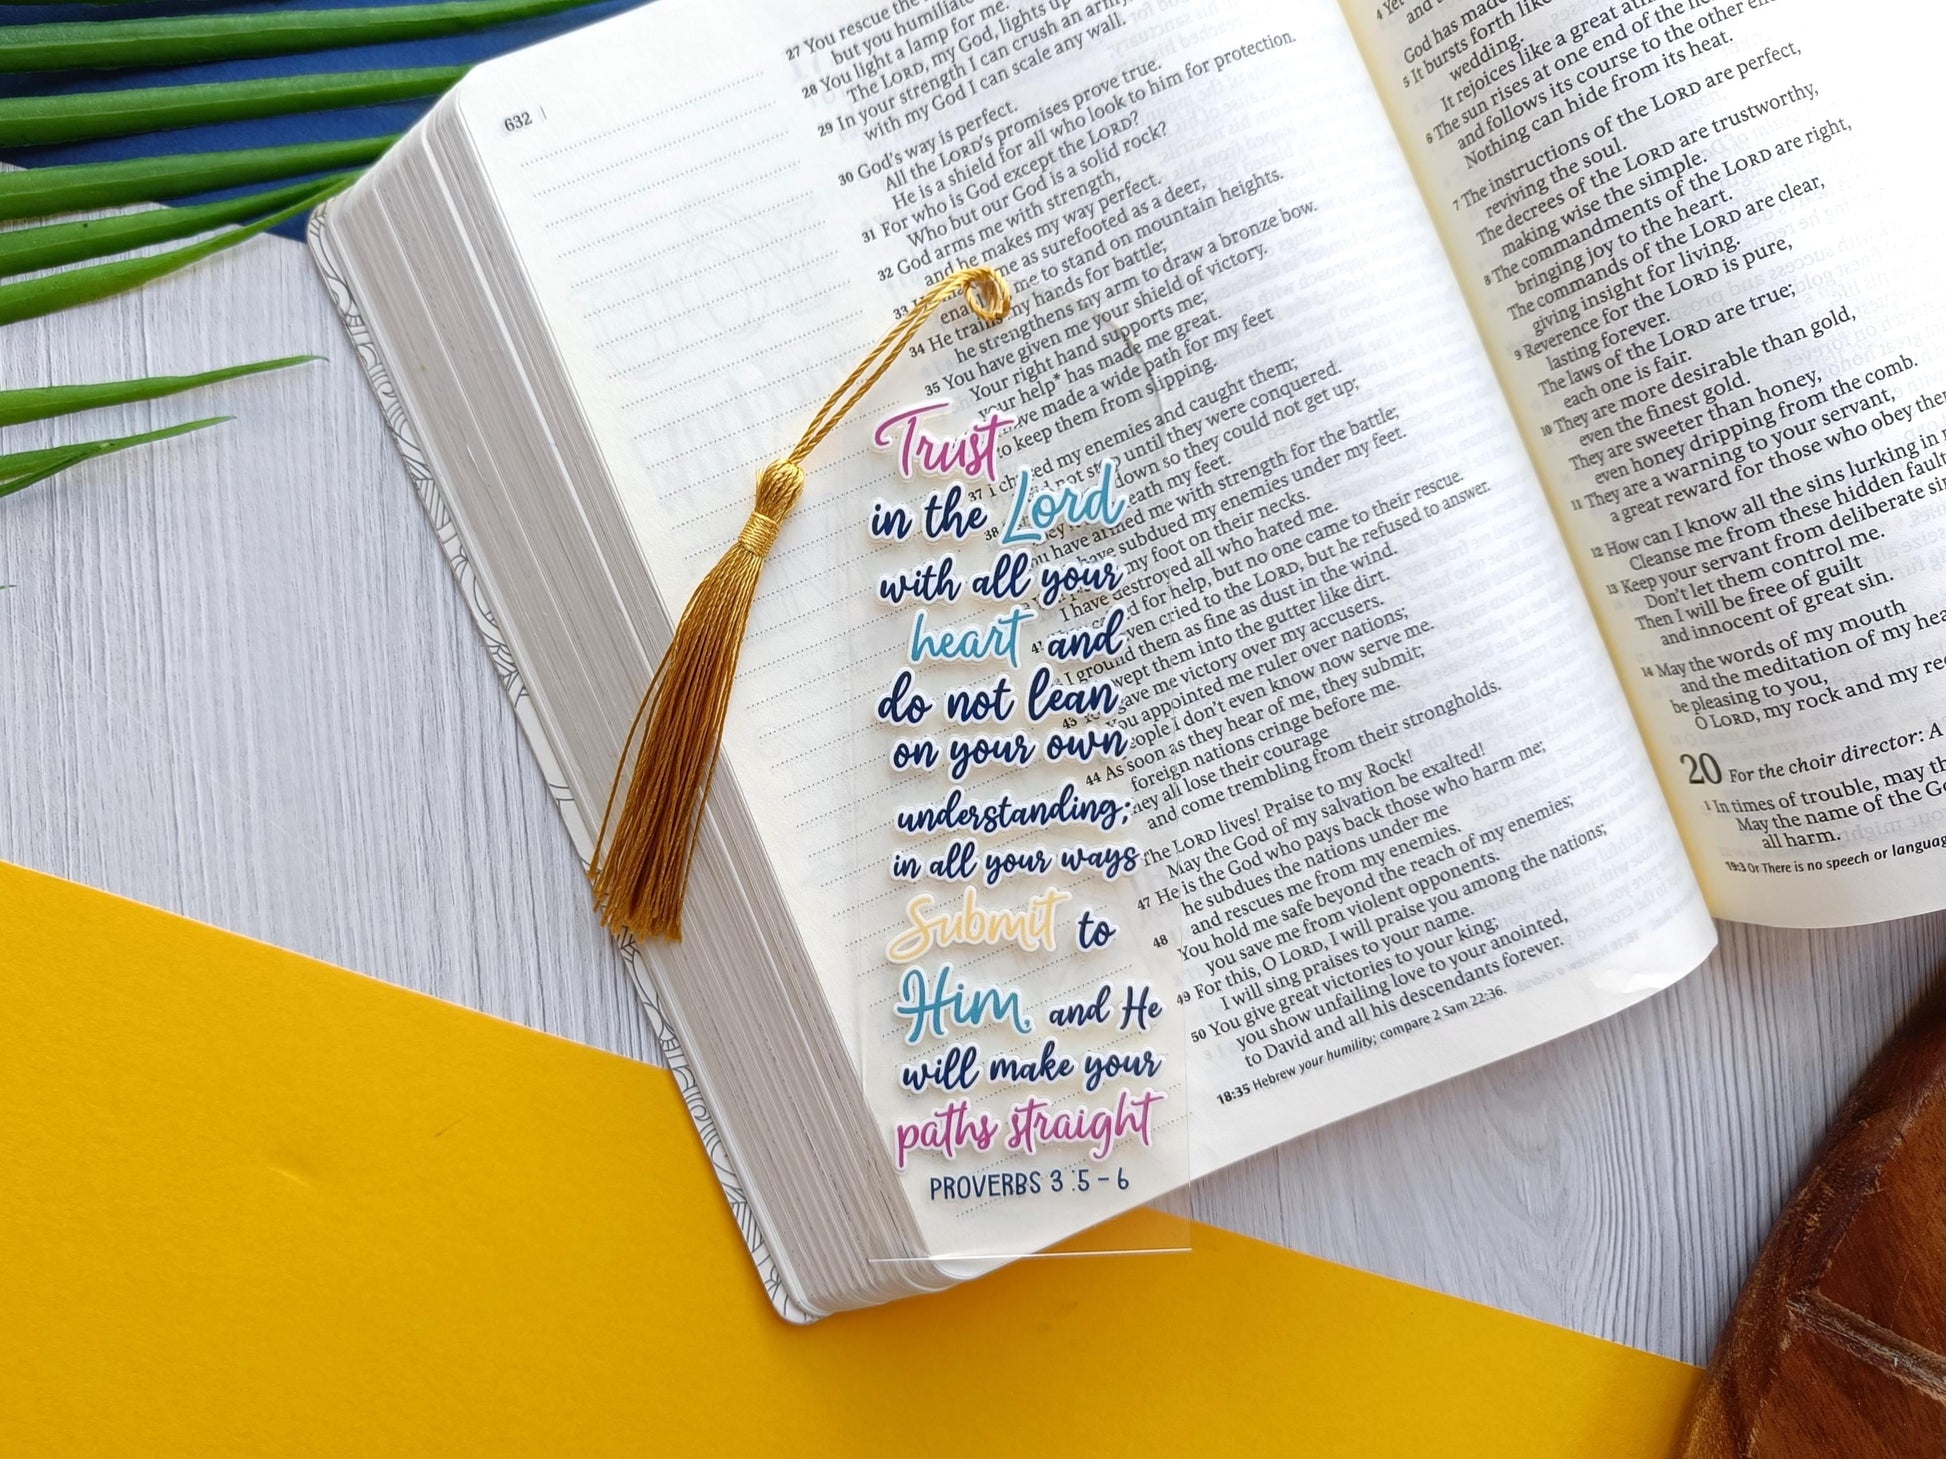 632 |
27 You rescue the
but you humiliate
28 You light a lamp for me.
The LORD, my God, lights up
29 In your strength I can crush an army
with my God I can scale any wall.
30 God's way is perfect.
All the LORD's promises prove true.
He is a shield for all who look to him for protection.
31 For who is God except the LORD?
Who but our God is a solid rock?
32 God arms me with strength,
and he makes my way perfect.
33 me as surefooted as a deer,
me to stand on mountain heights.
34 He trains my hands for battle;
he strengthens my arm to draw a bronze bow.
35 You have given me your shield of victory.
Your right hand supports me;
your help* has made me great.
have made a wide path for my feet
to keep them from slipping.
37 I chased my enemies and caught them;
did not stop until they were conquered.
38 down so they could not get up;
beneath my feet.
have armed me with strength for the battle;
have subdued my enemies under my feet.
my foot on their necks.
I have destroyed all who hated me.
for help, but no one came to their rescue.
even cried to the LORD, but he refused to answer.
I ground them as fine as dust in the wind.
swept them into the gutter like dirt.
43 gave me victory over my accusers.
You appointed me ruler over nations;
people I don't even know now serve me.
44 As soon as they hear of me, they submit;
foreign nations cringe before me.
They all lose their courage
and come trembling from their strongholds.
The LORD lives! Praise to my Rock!
May the God of my salvation be exalted!
47 He is the God who pays back those who harm me;
he subdues the nations under me
48 and rescues me from my enemies.
You hold me safe beyond the reach of my enemies;
you save me from violent opponents.
49 For this, O LORD, I will praise you among the nations;
I will sing praises to your name.
50 You give great victories to your king;
you show unfailing love to your anointed,
to David and all his descendants forever.
18:35 Hebrew your humility; compare 2 Sam 22:36.
Trust
in the Lord
with all your
heart and
do not lean
on your own
understanding;
in all your ways
Submit to
Him, and He
will make your
paths straight
PROVERBS 3:5-6
4 Yet
God has made
5 It bursts forth like
wedding.
It rejoices like a great
6 The sun rises at one end of the
and follows its course to the other
Nothing can hide from its heat.
7 The instructions of the LORD are perfect,
reviving the soul.
The decrees of the LORD are trustworthy,
making wise the simple.
8 The commandments of the LORD are right,
bringing joy to the heart.
The commands of the LORD are clear,
giving insight for living.
9 Reverence for the LORD is pure,
lasting forever.
The laws of the LORD are true;
each one is fair.
10 They are more desirable than gold,
even the finest gold.
They are sweeter than honey,
even honey dripping from the comb.
11 They are a warning to your servant,
a great reward for those who obey
12 How can I know all the sins lurking in
Cleanse me from these hidden
13 Keep your servant from deliberate
Don't let them control me.
Then I will be free of guilt
and innocent of great sin.
14 May the words of my mouth
and the meditation of my
be pleasing to you,
O LORD, my rock and my
20 For the choir director: A
1 In times of trouble, may
May the name of the
all harm.
19:3 Or There is no speech or